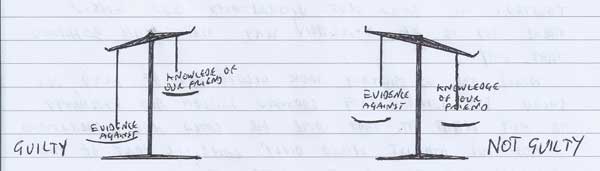 KNOWLEDE OF
OUR FRIEND
EVIDENCE
AGAINST
GUILTY
EVIDENCE
AGAINST
KNOWLEDGE
OF OUR
FRIEND
NOT GUILTY